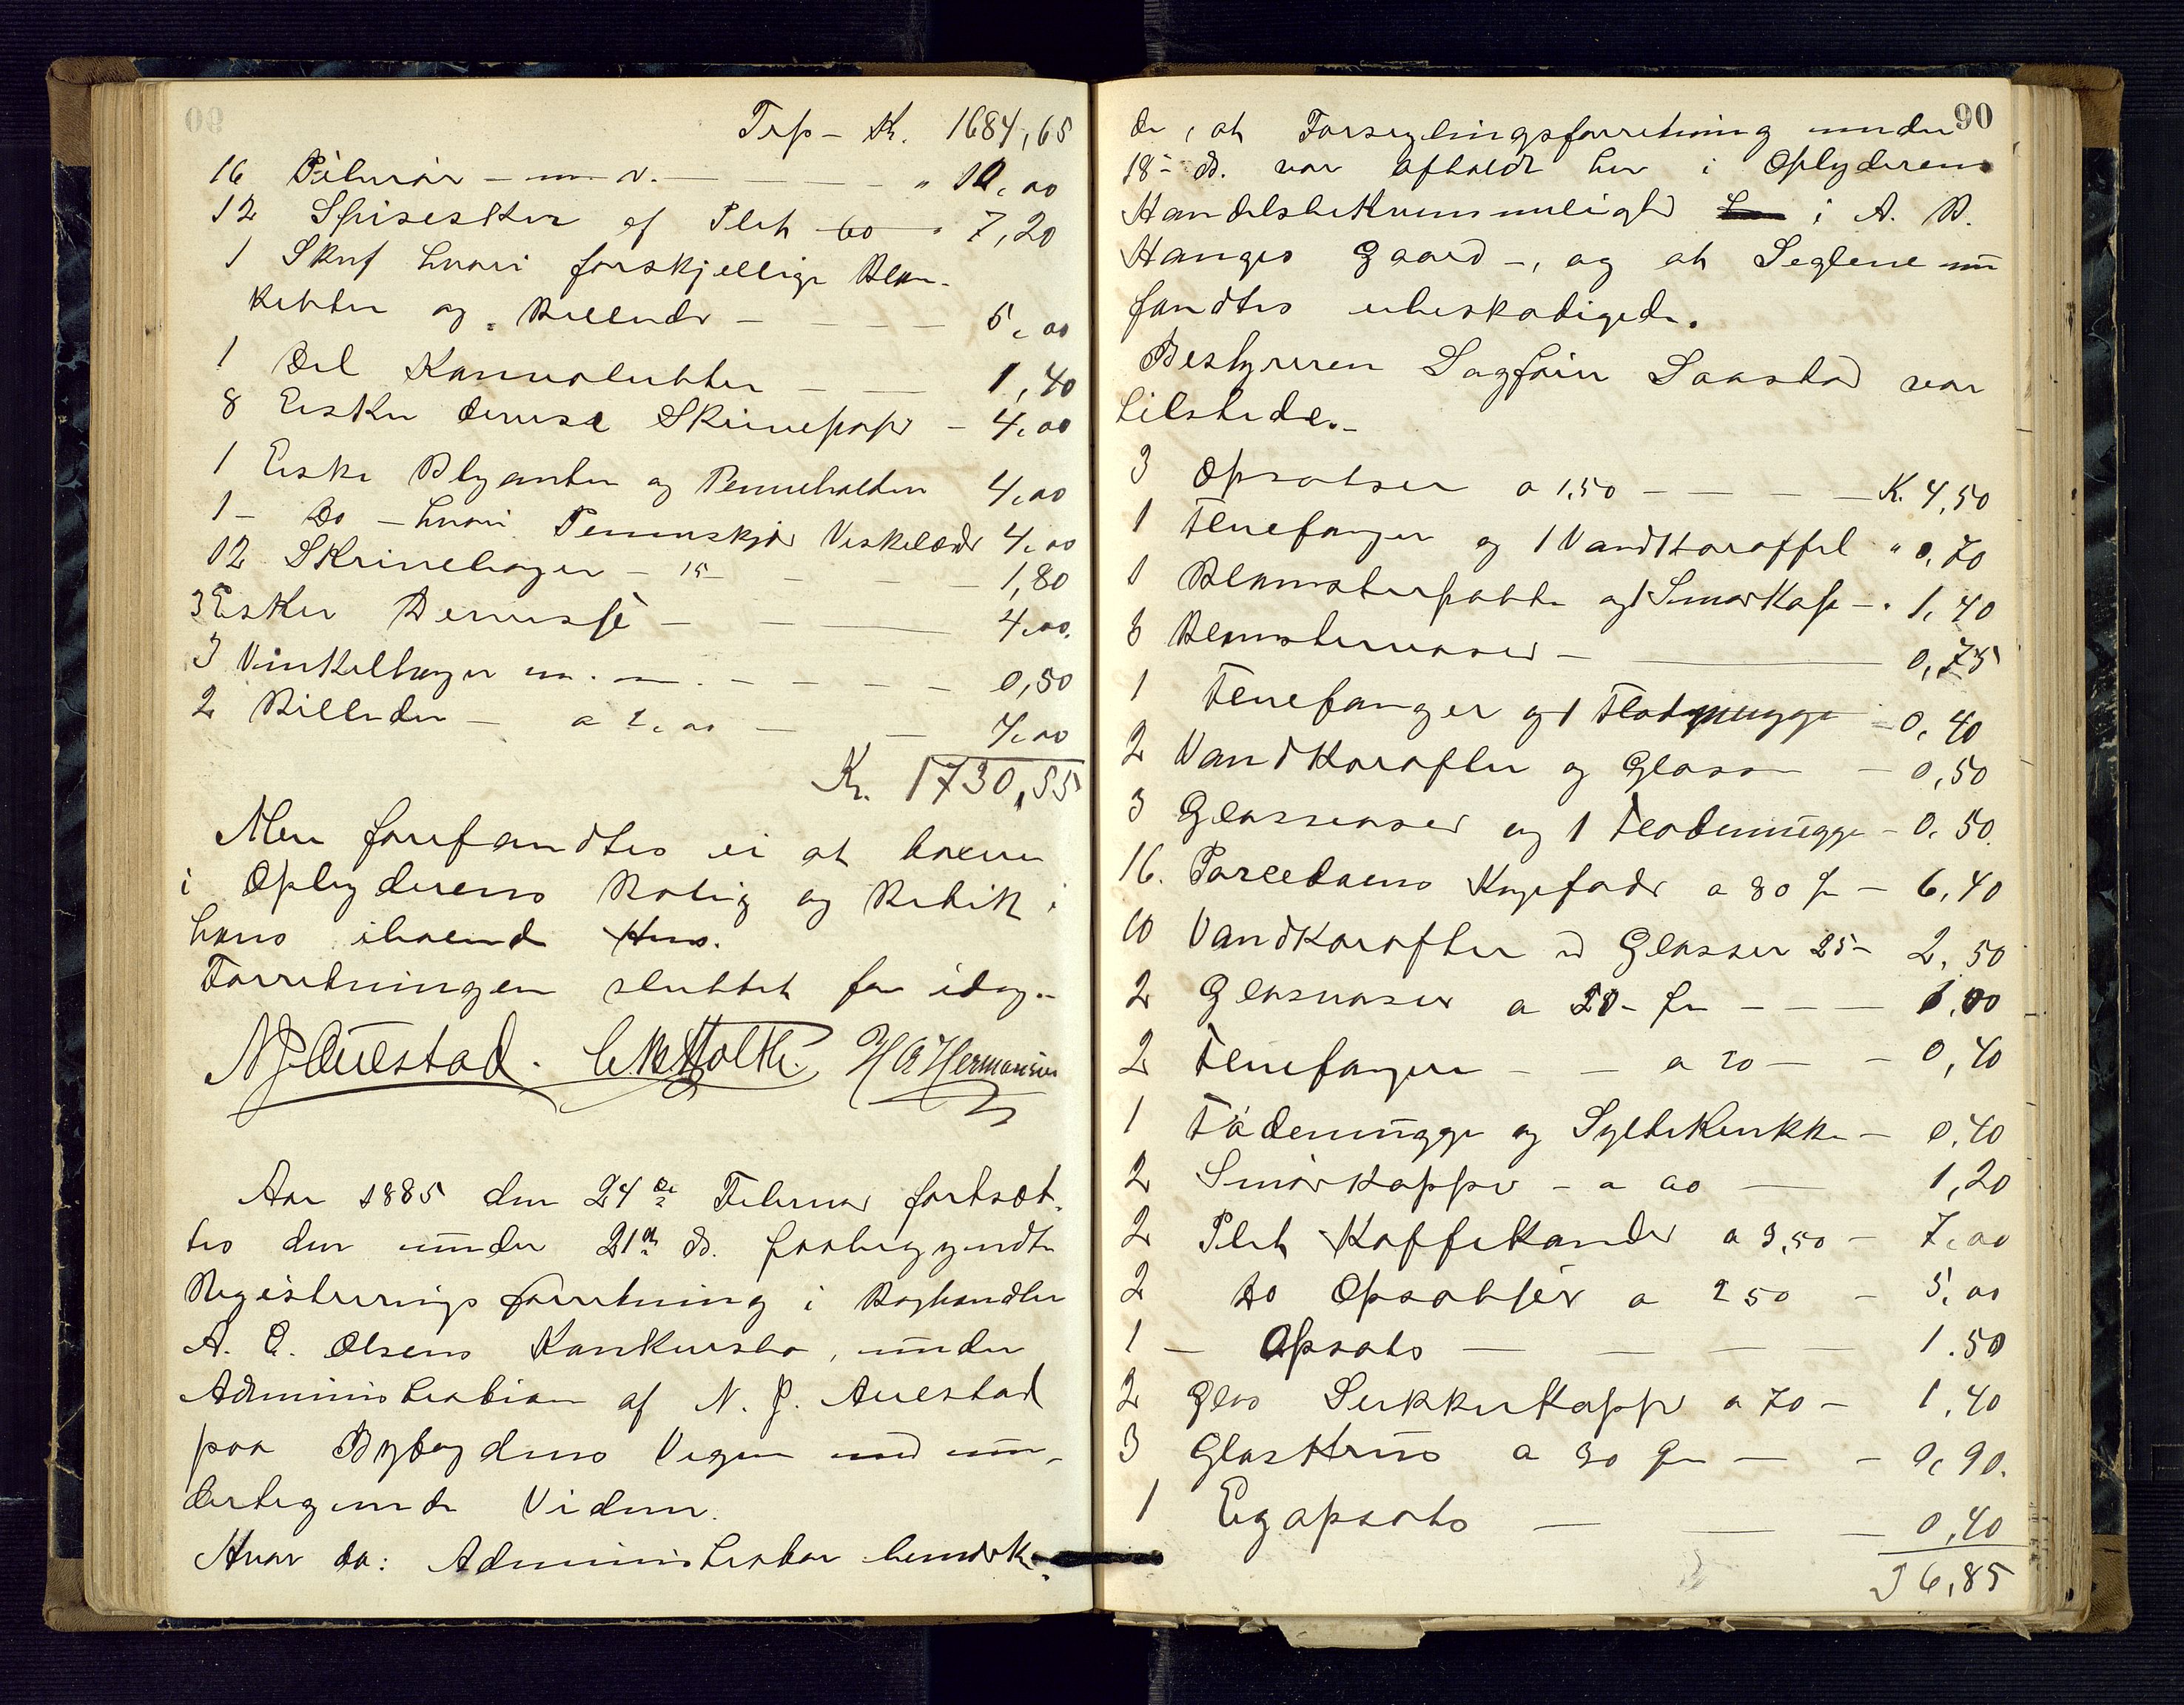 Trp – K. 1684,65
16 – " 10,00
12 Spiseskeer af Plet 60 " 7,20
1 Skuf hvori forskjellige Blan-
ketter og Billeder – 5,00
1 Del Konvolutter – 1,40
8 Esker diverse Skrivepapir – 4,00
1 Eske Blyanter og Penneholdere 4,00
1 – Do – hvori Pennuskjær Viskelæder 4,00
12 Skrivebøger – 15 – 1,80
3 Esker – 4,00
3 Vinkelhager m. m. – 0,50
2 Billeder – a 2,00 – 4,00
Kr. 1730,55
Mere forefandtes ei at være
i Opbyderens Bolig og Butik i
hans iboende Hus.
Forretningen sluttet for idag. –
N J Auestad. H A Hermansen
Aar 1885 den 24de Februar fortsat-
tes den under 21de ds. paabegyndte
Registreringsforretning i Boghandler
A. C. Olsens Konkursbo, under
Administration af N. J. Auestad
paa Byfogdens Vegne med un-
dertegnede Vidner.
Hvor da: Administrator bemærke-
90
de, at Forseglingsforretning under
18 – ds. var afholdt her i Opbyderens
Handelsbekvemmelighed i A. B.
Hanges Gaard –, og at Seglene nu
fandtes ubeskadigede.
Bestyreren Sagfører Saastad var
tilstede. –
3 Opsatser a 1,50 – K. 4,50
1 Fluefanger og 1 Vandkaraffel " 0,70
1 Blomsterpotte og 1 Smørkop – " 1,40
3 Blomstervaser – 0,75
1 Fluefanger og 1 Flødemugge – 0,40
2 Vandkarafler og Glasse – 0,50
3 Glasvaser og 1 Flødemugge – 0,50
16. Porcelæns Kagefade a 80 – 6,40
10 Vandkarafler Glasser 25 – 2,50
2 Glasvaser a – 1,00
2 Fluefangere – a 20 – 0,40
1 Flødemugge og Syltekrukke – 0,40
2 Smørkopper – a 60 – 1,20
2 Plet Kaffekander a 3,50 – 7,00
2 Do Opsatser a 2 50 – 5,00
1 – Opsats – 1.50
2 Glas Sukkerkopper a 70 – 1,40
3 Glaskrus a 30 – 0,90.
1 Egopsats – 0,40
36,85